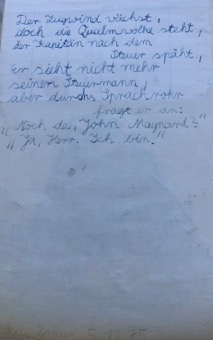 Der Zugwind wächst,
doch die Qualmwolke steht,
der Kapitän nach dem
Steuer späht,
Er sieht nicht mehr
seinen Steuermann,
aber durchs Sprachrohr
fragt er an:
„Noch da, John Maynard?"
„Ja, Herr. Ich bin."